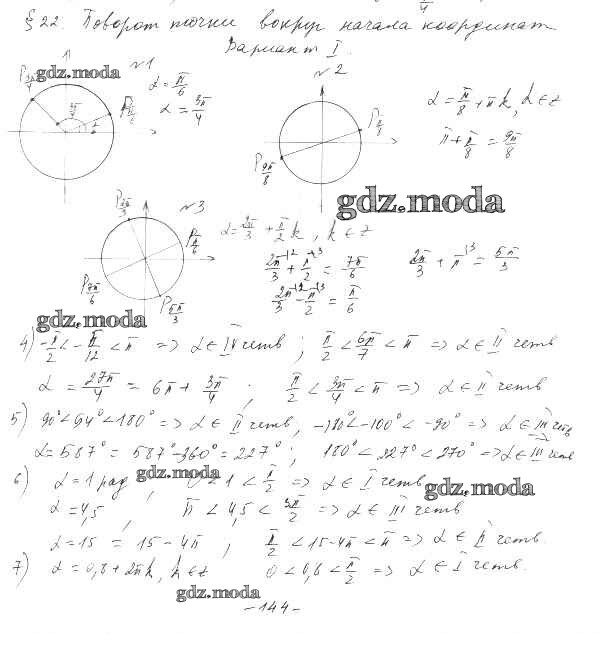 §22. Поворот точки вокруг начала координат
Вариант I.
gdz.moda
№1
P3π/4
Pπ/6
3π/4
α = π/6
α = 3π/4
№2
Pπ/8
P9π/8
α = π/8 + πk, k ∈ z
π + π/8 = 9π/8
gdz.moda
№3
P2π/3
Pπ/6
P7π/6
P5π/3
α = 2π/3 + π/2 k, k ∈ z
2π/3 + π/2 = 7π/6
2π/3 + π = 5π/3
2π/3 - π/2 = π/6
gdz.moda
4) -π/2 < -π/12 < π => α ∈ IV четв ; π/2 < 6π/7 < π => α ∈ II четв
α = 27π/4 = 6π + 3π/4 ; π/2 < 3π/4 < π => α ∈ II четв
5) 90° < 94° < 180° => α ∈ II четв, -180° < -100° < -90° => α ∈ III четв
α = 587° = 587° - 360° = 227° ; 180° < 227° < 270° => α ∈ III четв
gdz.moda
6) α = 1 рад , 0 < 1 < π/2 => α ∈ I четв
gdz.moda
α = 4,5 , π < 4,5 < 3π/2 => α ∈ III четв
α = 15 = 15 - 4π ; π/2 < 15 - 4π < π => α ∈ II четв.
7) α = 0,8 + 2πk, k ∈ z 0 < 0,8 < π/2 => α ∈ I четв.
gdz.moda
- 144 -